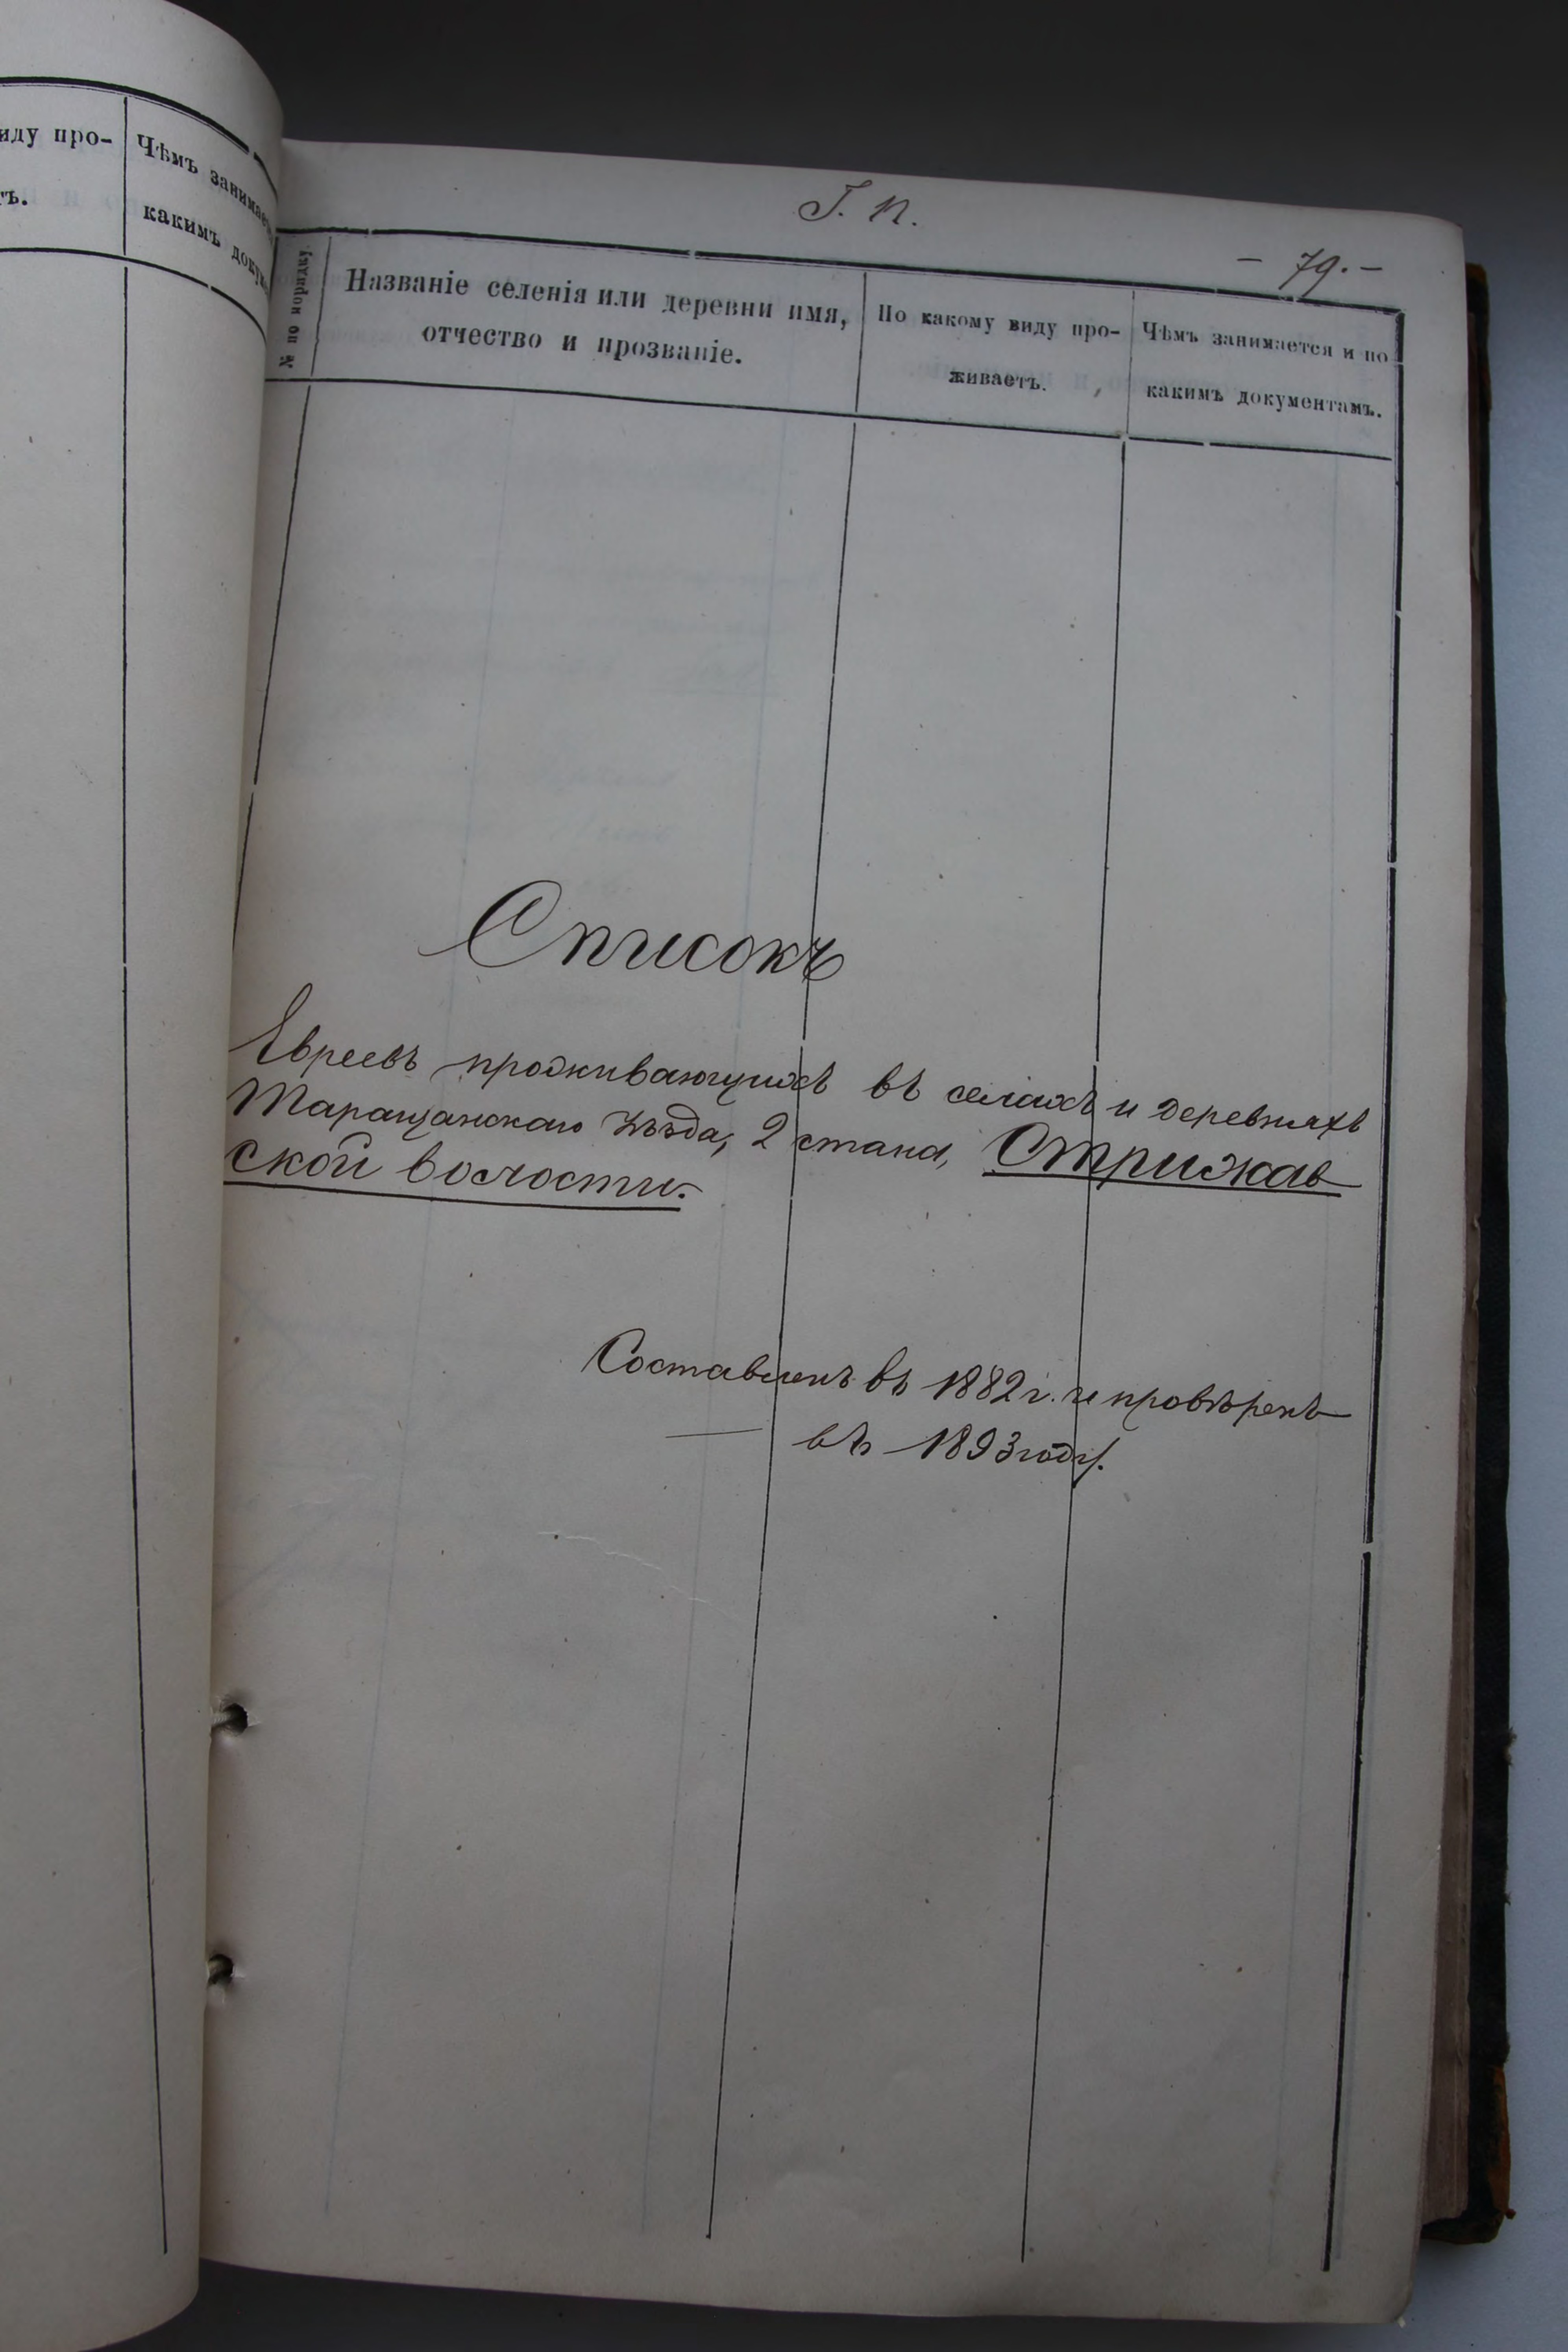 иду про-
ъ.
Чѣмъ занимает
какимъ докум
Г. П.
- 79. -
№ по порядку.
Названіе селенія или деревни имя,
отчество и прозваніе.
По какому виду про-
живаетъ.
Чѣмъ занимается и по
какимъ документамъ.
Списокъ
Евреевъ проживающихъ въ селахъ и деревняхъ
Таращанскаго Уѣзда, 2 стана, Стрижав
ской волости.
Составленъ въ 1882 г. и провѣренъ
въ 1893 году.